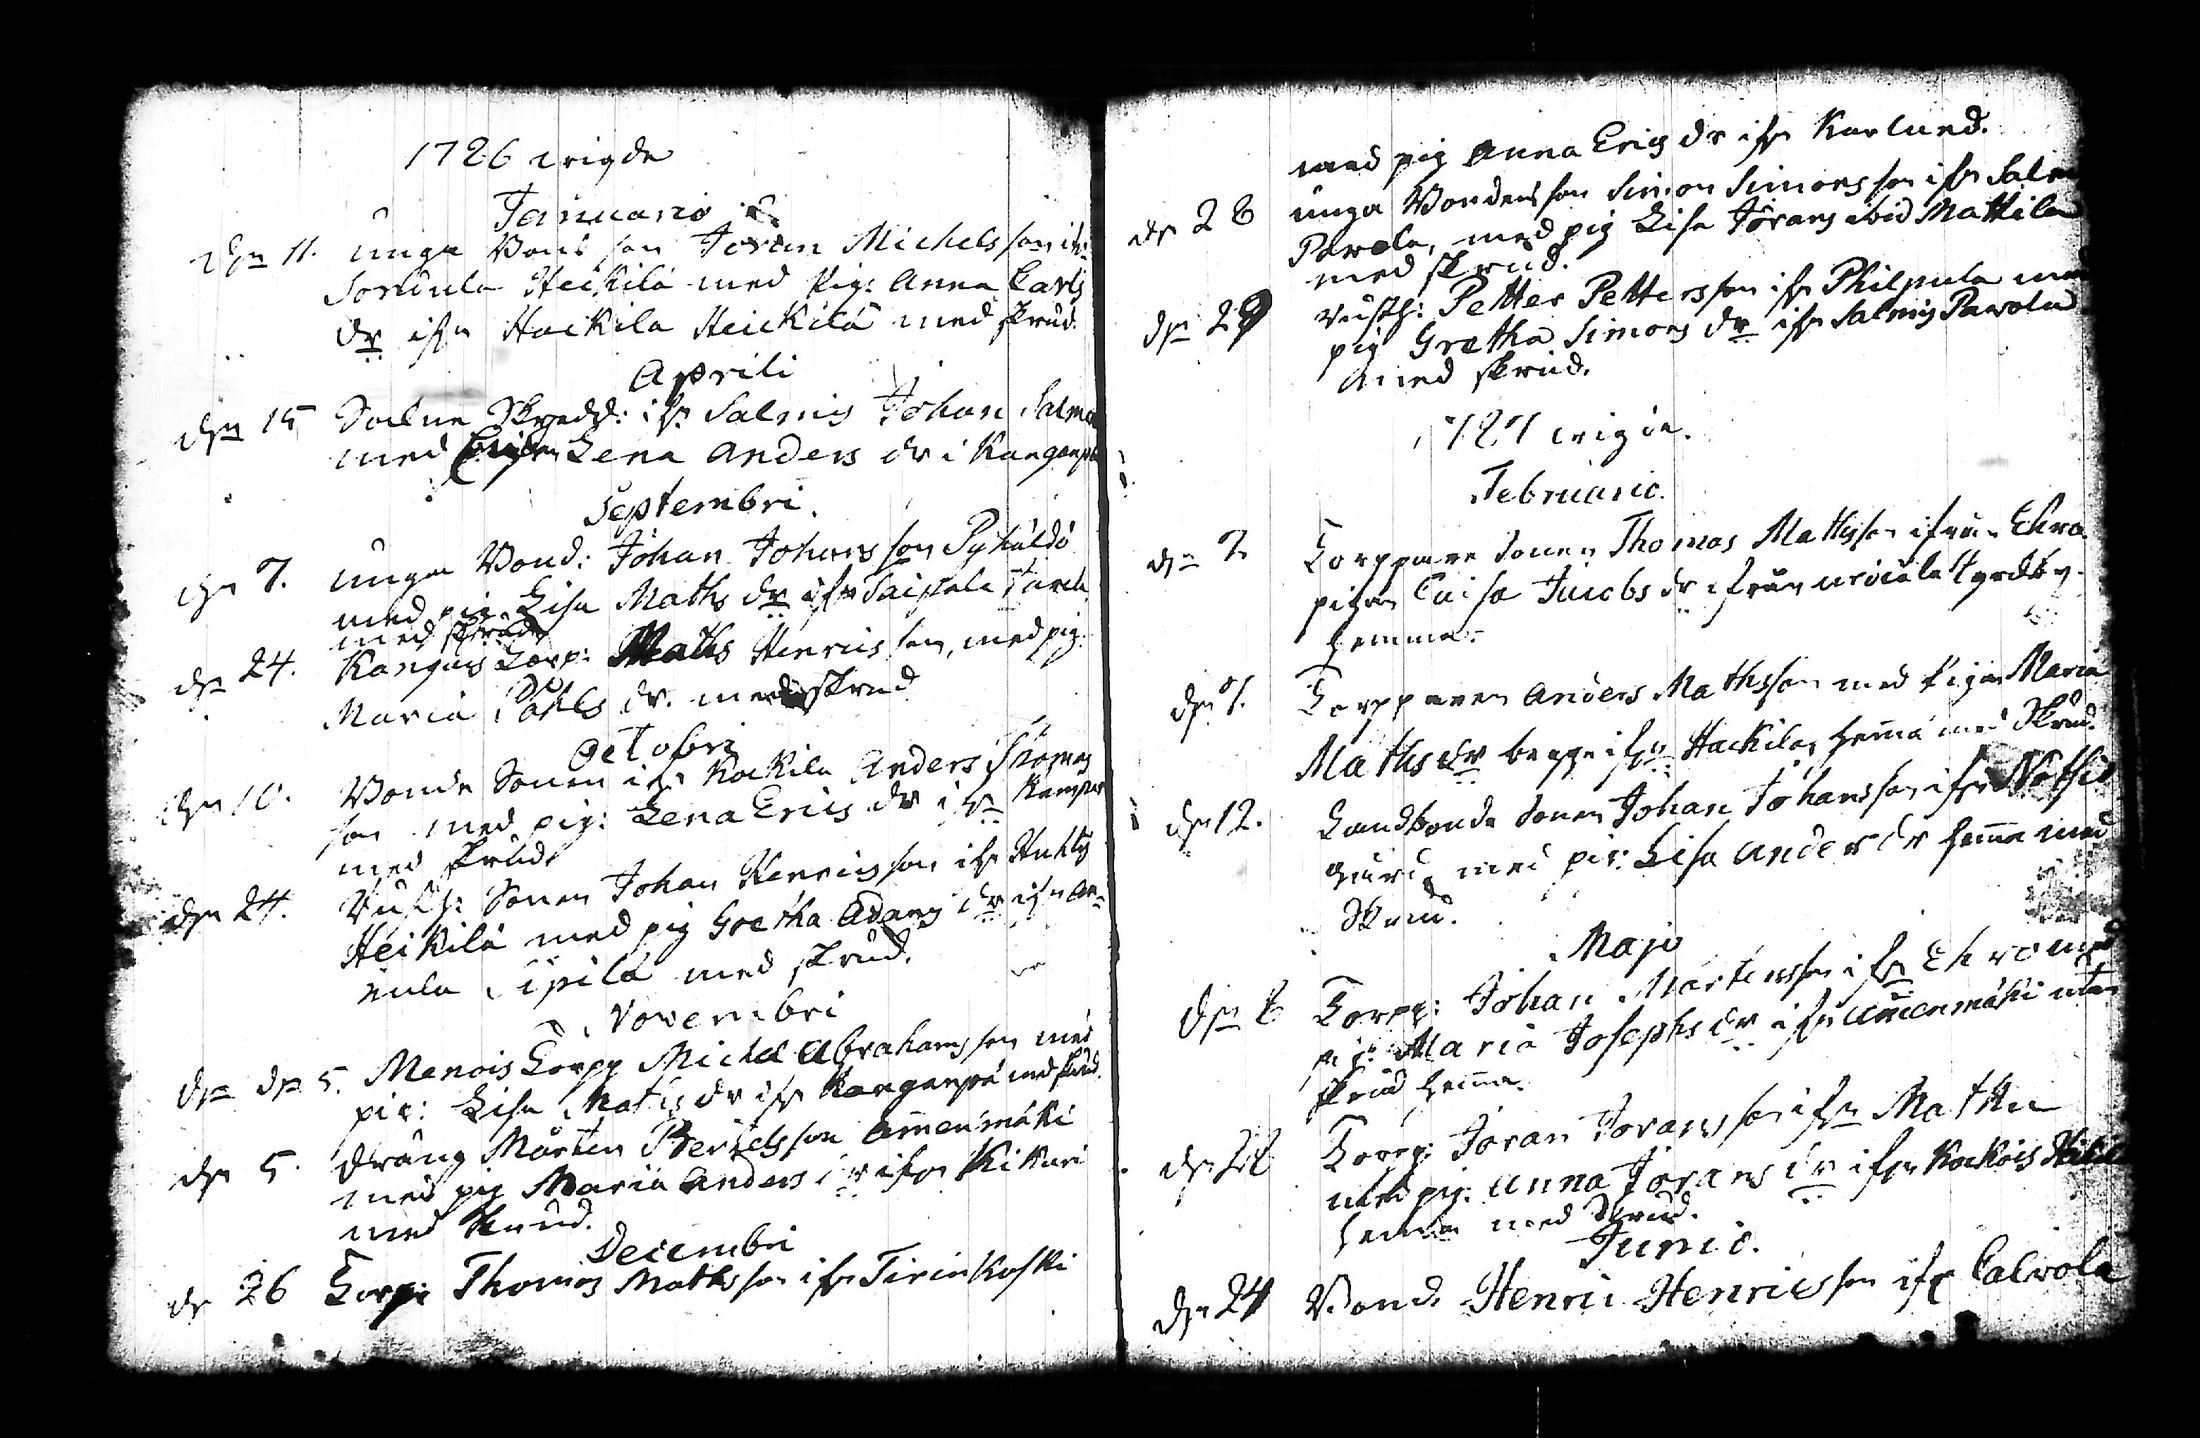 1786 wigde
Januario
den 11. unga Bond son Jöran Michelsson ifr
Sorkula Heickilä med Pig: Anna Carls
dr ifrn Hackila Heickilä med skrud.
Aprili
den 15 Sockne Skredd: ifr Salmis Johan Salmo
med Pigan Lena Anders dr i Kangenpä
Septembri.
den 7. unga Bond: Johan Johansson Pyhäldö
med pig. Lisa Maths dr ifrn Saipala
med skrud
dn 24. Kangais Torp: Maths Henricsson, med pig.
Maria Påhls dr. med skrud
Octobri
den 10. Bonde Sonen ifr Kockila Anders Thomas
son med pig: Lena Erics dr ifrn
med skrud
den 24. Busth: Sonen Johan Henricsson ifr Huhtis
Heikilä med pig Gretha Adams dr ifrn
Sipilä med skrud.
Novembri
den dn 5. Menois Torpp Michel Abrahamsson med
pig: Lisa Maths dr ifr Kangenpä med skrud.
dn 5. dräng Mårten Bertelsson Ammenmäki
med pig Maria Anders dr ifrn Kikuri
med skrud.
Decembri
dn 26 Torp: Thomas Mathsson ifr Tirinkoski
med pig Anna Erics dr ifr Karlund.
dn 26 unga Bondens son Simon Simonsson ifr Salmis
Parola, med pig Lisa Jörans vid Mattila
med skrud.
dn 29 rusth: Petter Pettersson ifr Philpula med
pig Gretha Simons dr ifr Salmis Parola
med skrud.
1787 wigde.
Februario.
dn 2. Torppare Sonen Thomas Mathsson ifrån Ehro
pigan Caisa Jacobs dr ifrån
hemma.
dn Torpparen Anders Mathsson med Pigan Maria
Maths dr begge ifrn Hackila, hemma med Skrud.
dn 12. Landbonde Sonen Johan Johansson ifr
gård, med pig: Lisa Anders dr hemma med
Skrud.
Majo
dn 6 Torpp: Johan Mårtensson ifr Ehro med
pig: Maria Josephs dr ifrn Ammenmäki utan
skrud hemma.
dn Torpp: Jöran Jöransson ifrn Mathu
med pig: Anna Jörans dr ifrn Kockois
hemma med Skrud.
Junio.
dn 24 Bond. Henric Henricsson ifr Calvola